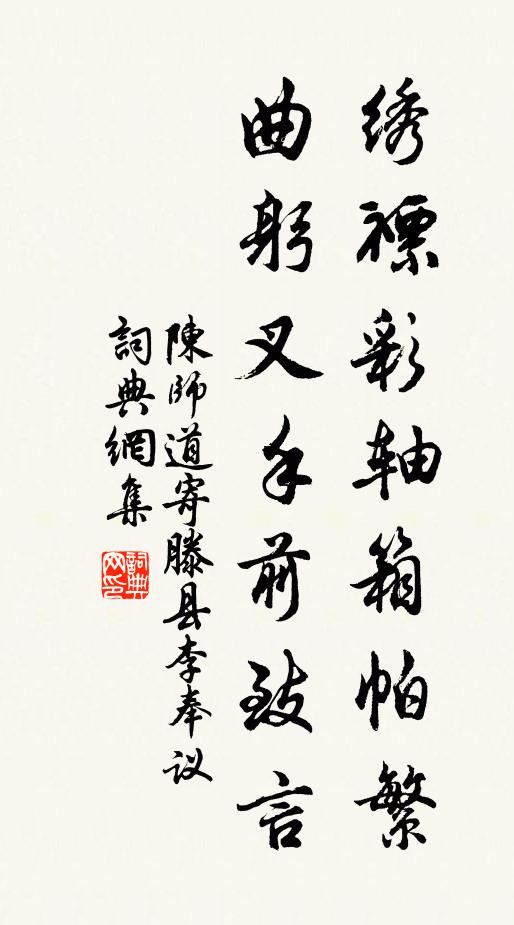 绣褾彩轴箱帕繁
曲躬叉手前致言
陳師道寄滕县李奉议
詞典網集
詞典网印